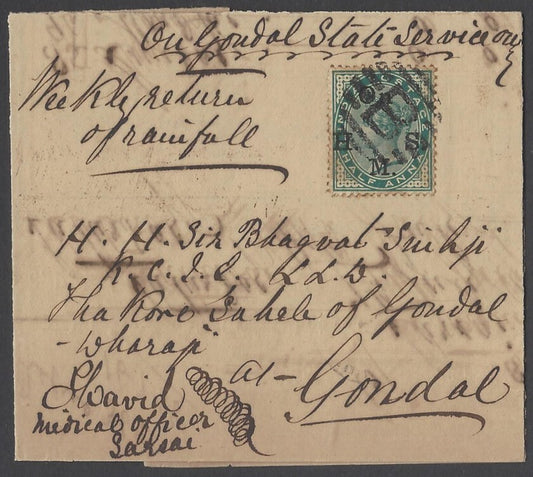 On Gondal State Service only
Weekly return
of rainfall
INDIA POSTAGE
H S
M.
HALF ANNA
H. H. Sir Bhagvat Sinhji
K. C. I. E. L L. D.
Thakore Saheb of Gondal
- Dhoraji
at - Gondal
David
medical officer
Sarsai